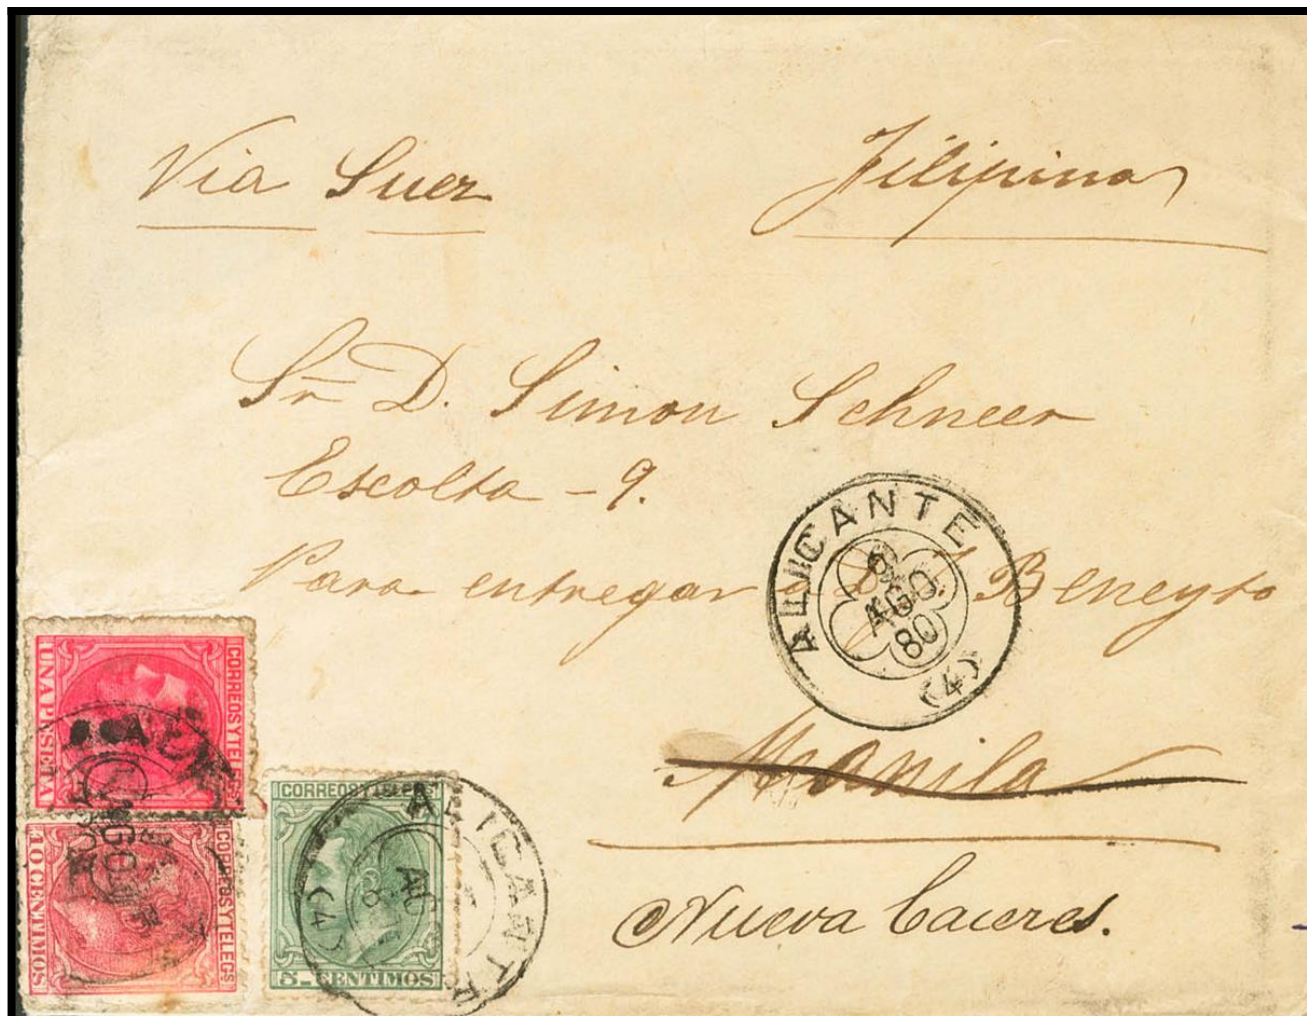 Via Suez
Filipinas
Sr D. Simon Schneer
Escolta - 9.
Para entregar a D. J. Beneyto
ALICANTE
6
AGO.
80
(4)
Manila
Nueva Caceres.
CORREOS Y TELEGS
UNA PESETA
CORREOS Y TELEGS
10 CENTIMOS
CORREOS Y TELEGS
5 CENTIMOS
ALICANTE
(4)
AGO